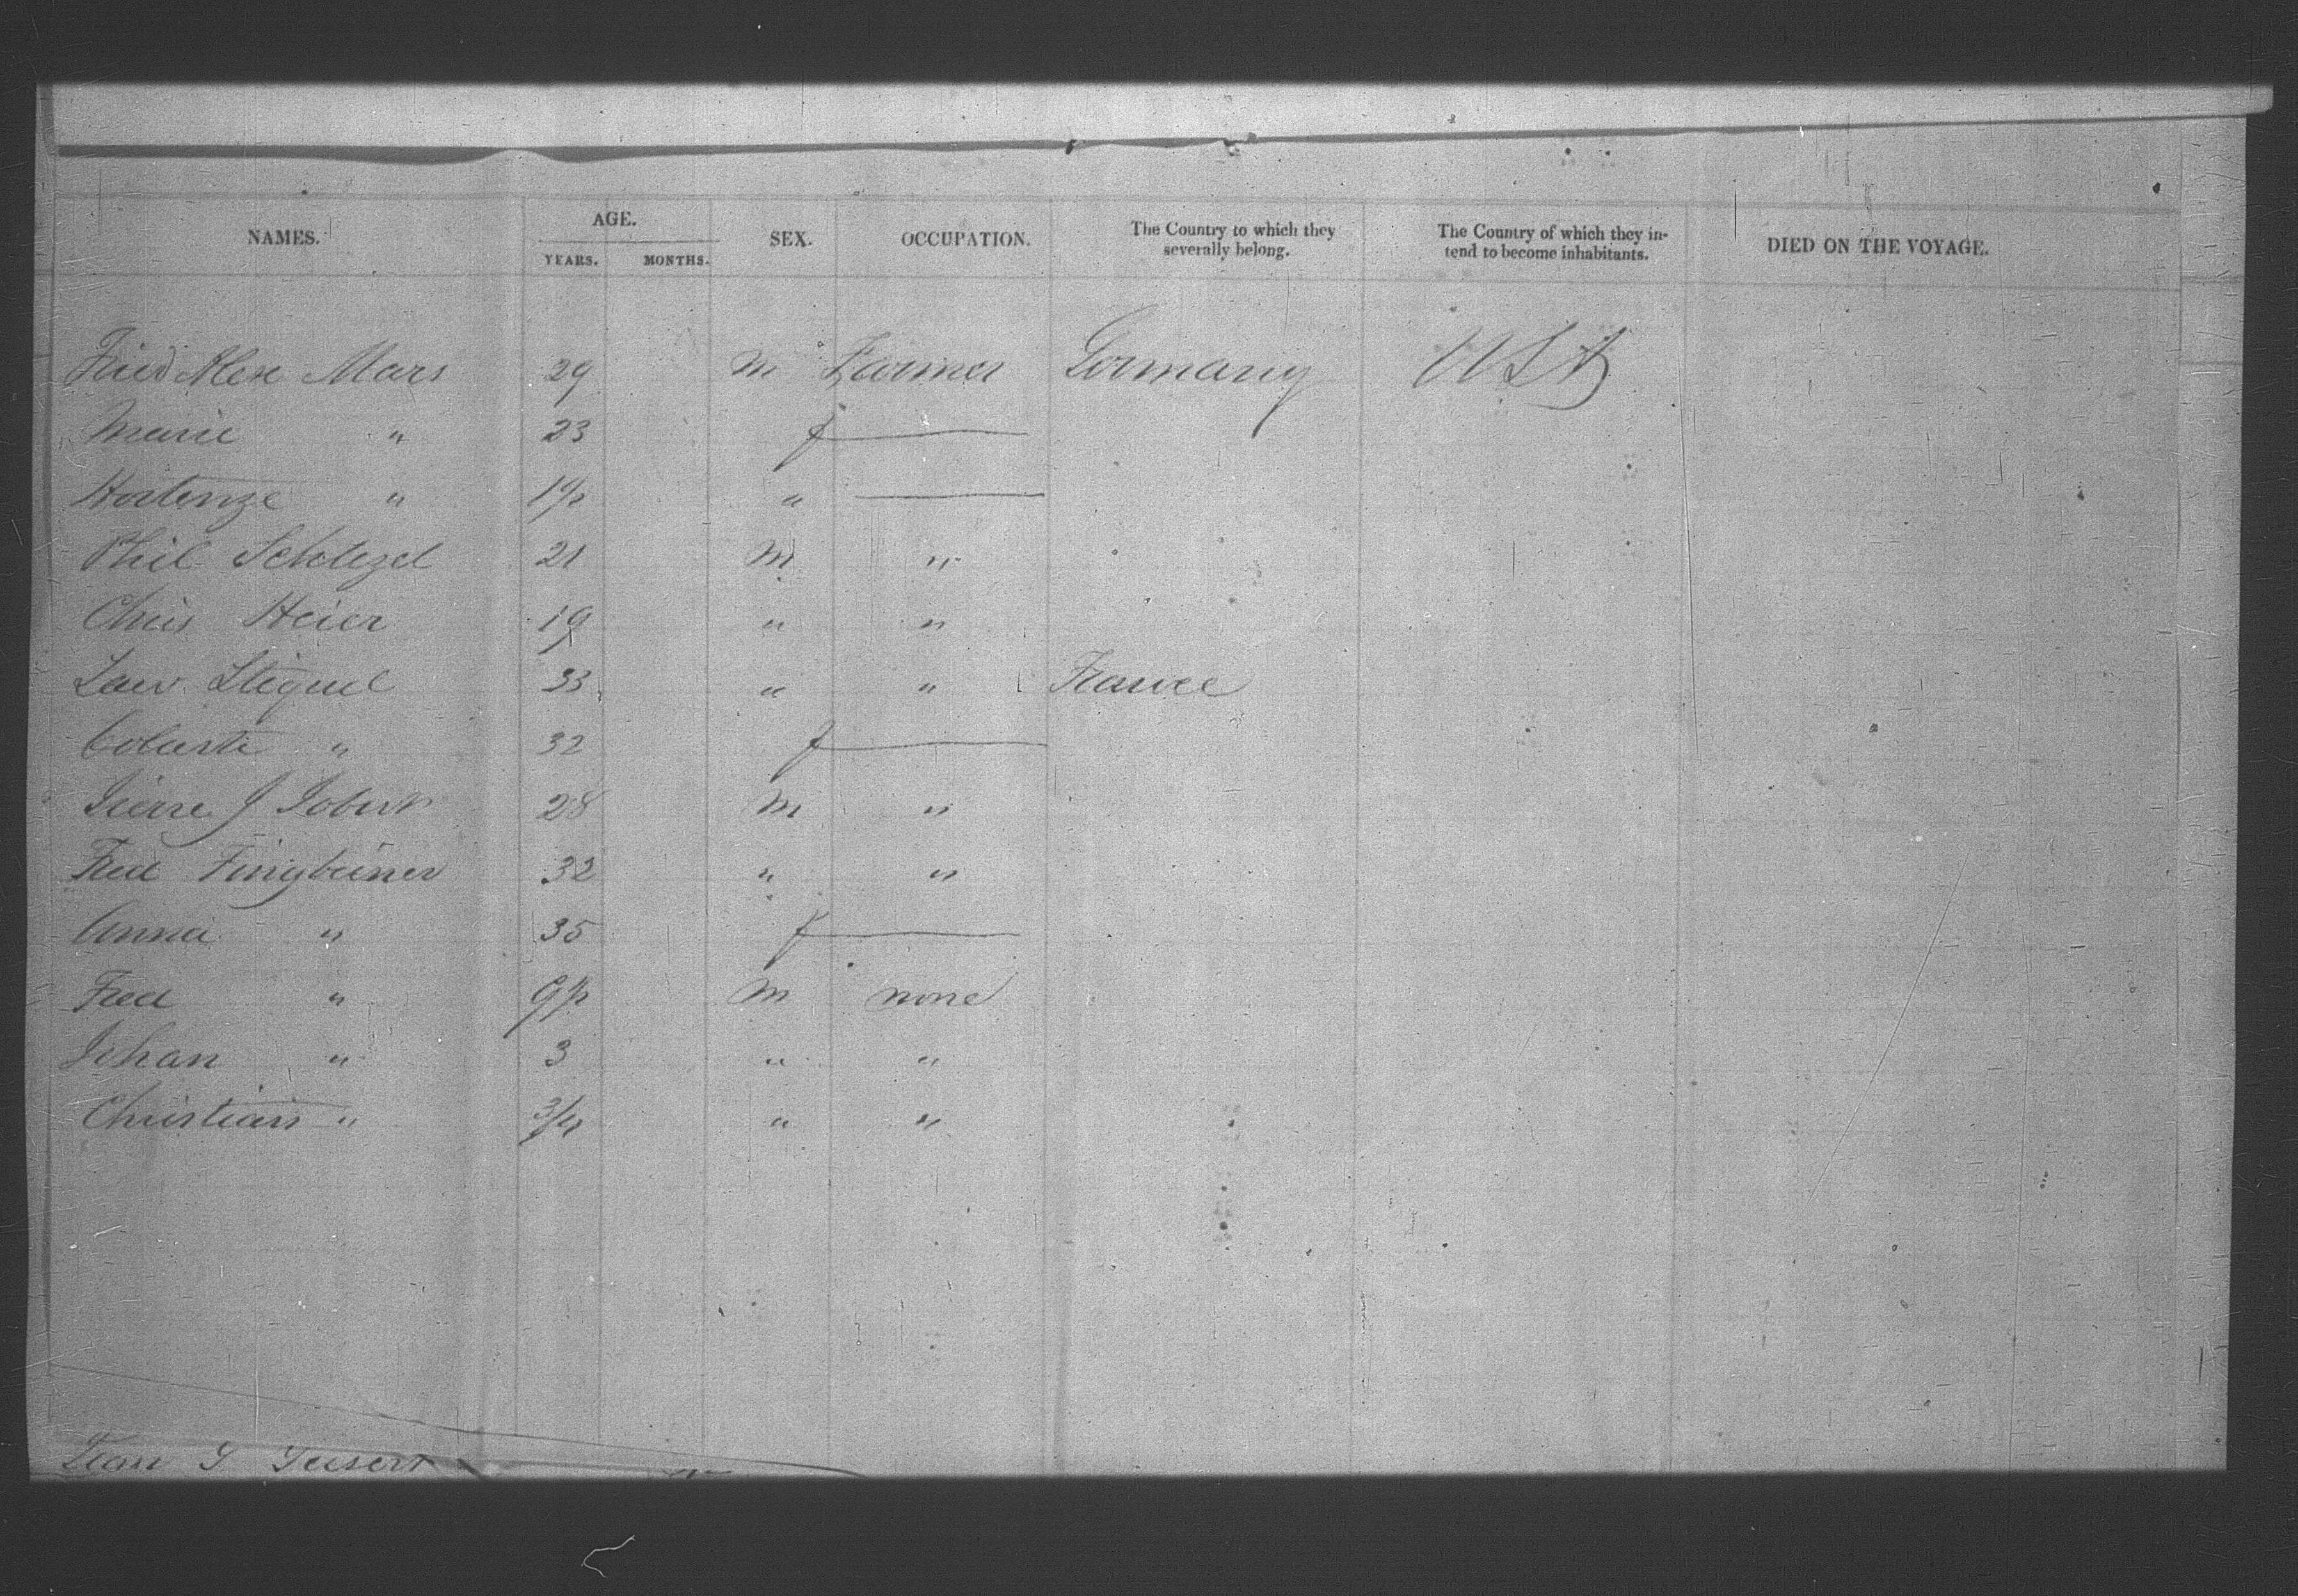 NAMES. AGE. SEX. OCCUPATION. The Country to which they severally belong. The Country of which they in-tend to become inhabitants. DIED ON THE VOYAGE.
YEARS. MONTHS.
Fried Alex Mars 29 M Farmer Germany USA
Marie " 23 f
Hortenze " "
Phil Schlegel 21 M "
Chris Heier 19 " "
Law. Stiquel 33 " " France
" 32 f
Pierre J Jobert 28 M "
Fred Fingbeiner 32 " "
Anna " 35 f
Fred " M none
Johan " 3 " "
Christian " 3/4 " "
Jean